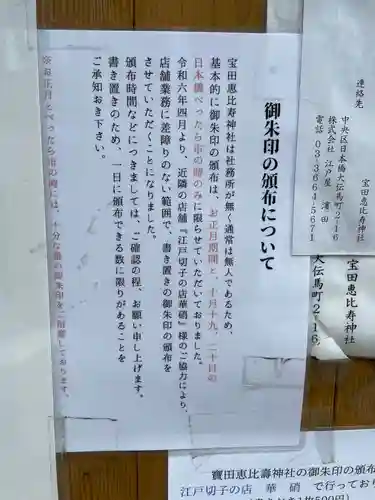 御朱印の頒布について
宝田恵比寿神社は社務所が無く通常は無人であるため、
基本的に御朱印の頒布は、お正月期間と、十月十九、二十日の
日本橋べったら市の時のみに限らせていただいておりました。
令和六年四月より、近隣の店舗『江戸切子の店華硝』様のご協力により、
店舗業務に差障りのない範囲で、書き置きの御朱印の頒布を
させていただくことになりました。
頒布時間などにつきましては、ご確認の程、お願い申し上げます。
書き置きのため、一日に頒布できる数に限りがあることを
ご承知おき下さい。
お正月とべったら市の時には、十分な量の御朱印をご用意しております。
連絡先
宝田恵比寿神社
中央区日本橋大伝馬町2-16
株式会社 江戸屋 濱田
電話 03-3664-5671
宝田恵比寿神社
大伝馬町2-16
寶田恵比寿神社の御朱印の頒布
江戸切子の店 華硝 で行っており